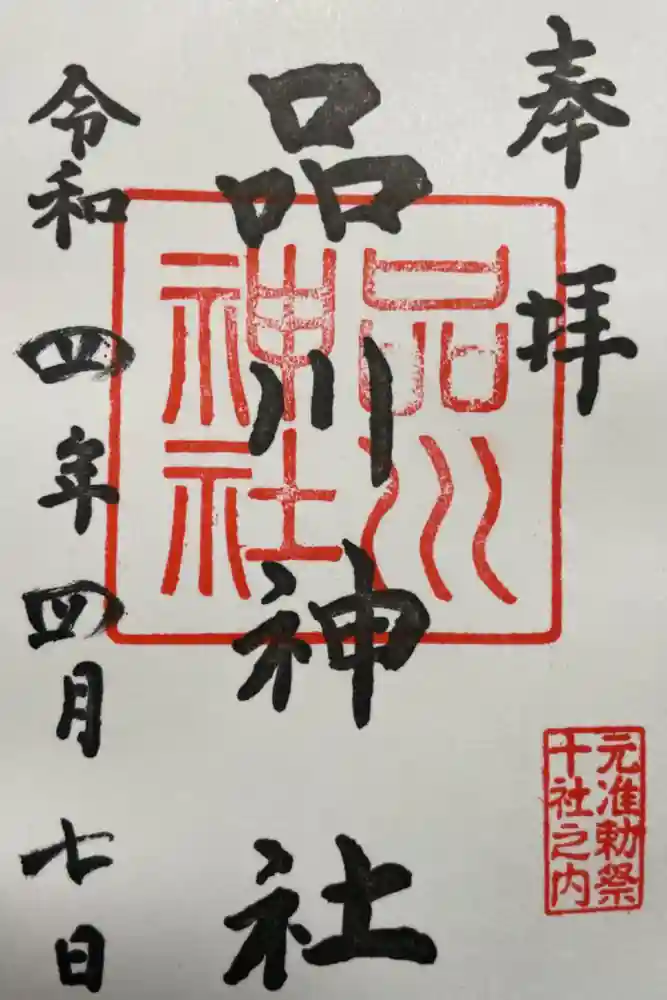 奉拝
品川神社
品川
神社
元准勅祭
十社之内
令和四年四月七日